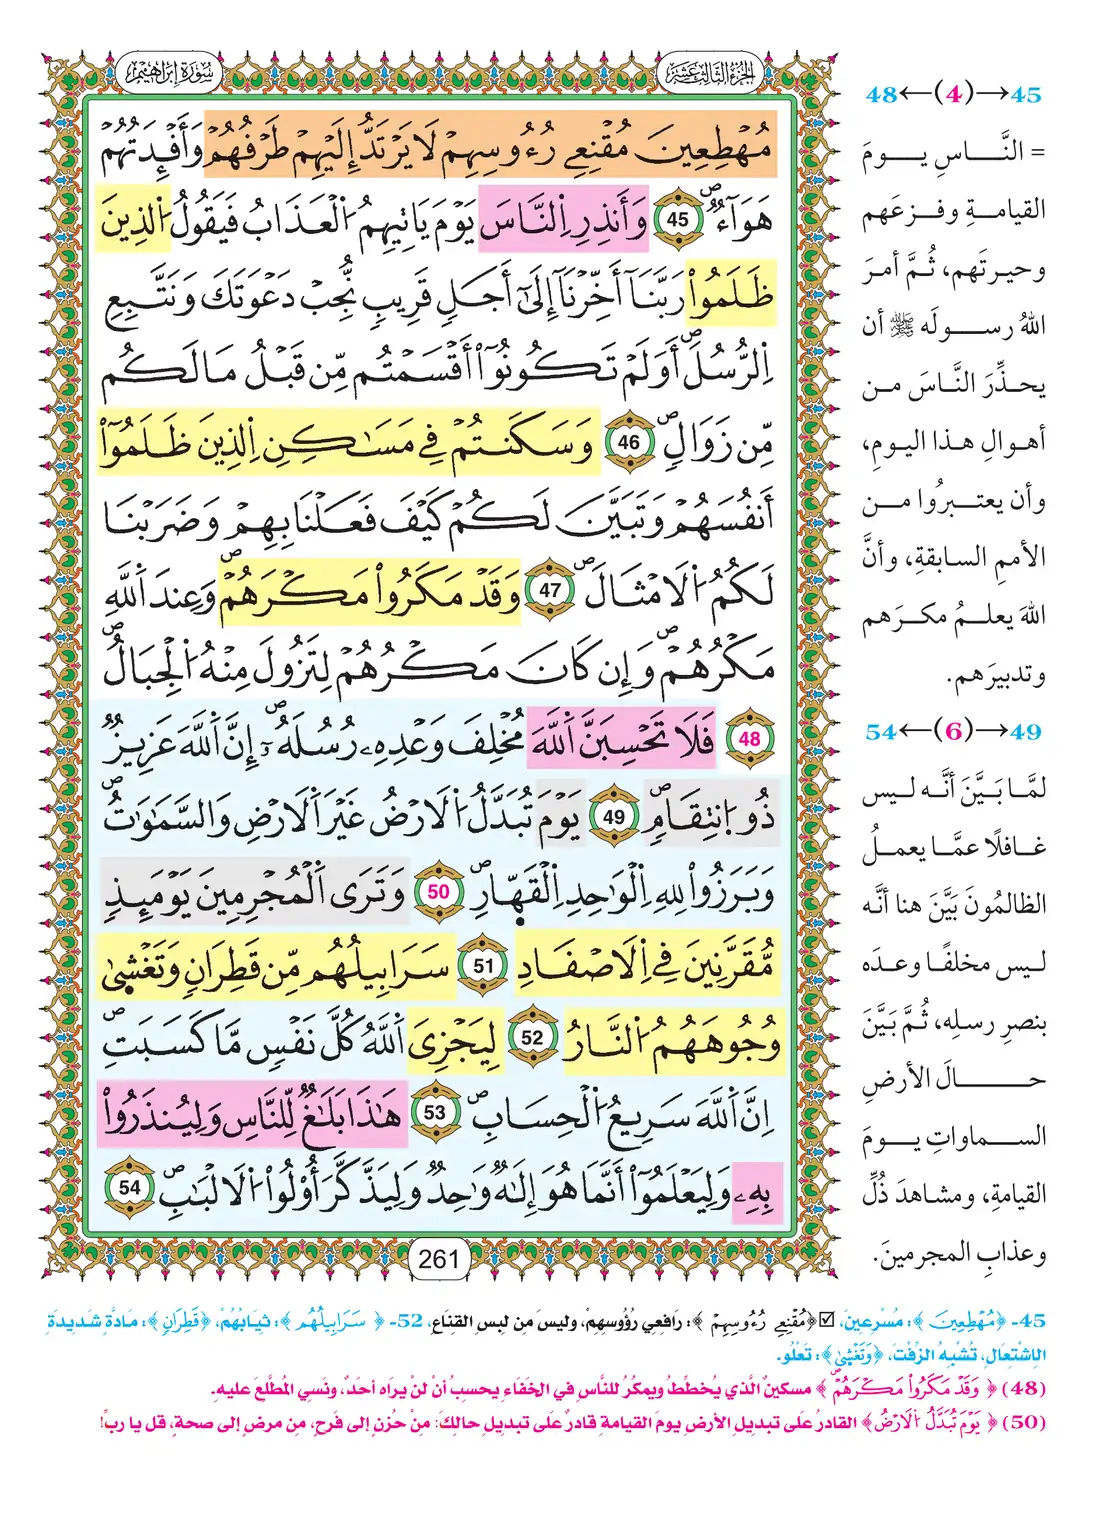 الجزء الثالث عشر
سورة إبراهيم
مُهْطِعِينَ مُقْنِعِے رُءُوسِهِمْ لَا يَرْتَدُّ إِلَيْهِمْ طَرْفُهُمْ وَأَفْـِٕدَتُهُمْ
هَوَآءٌ 45 وَأَنذِرِ اِلنَّاسَ يَوْمَ يَاتِيهِمُ اُلْعَذَابُ فَيَقُولُ اُلذِينَ
ظَلَمُواْ رَبَّنَآ أَخِّرْنَآ إِلَىٰٓ أَجَلٖ قَرِيبٖ نُّجِبْ دَعْوَتَكَ وَنَتَّبِعِ
اِلرُّسُلَ أَوَلَمْ تَكُونُوٓاْ أَقْسَمْتُم مِّن قَبْلُ مَا لَكُم
مِّن زَوَالٖ 46 وَسَكَنتُمْ فِے مَسَٰكِنِ اِلذِينَ ظَلَمُوٓاْ
أَنفُسَهُمْ وَتَبَيَّنَ لَكُمْ كَيْفَ فَعَلْنَا بِهِمْ وَضَرَبْنَا
لَكُمُ اُلَامْثَالَ 47 وَقَدْ مَكَرُواْ مَكْرَهُمْ وَعِندَ اَللَّهِ
مَكْرُهُمْ وَإِن كَانَ مَكْرُهُمْ لِتَزُولَ مِنْهُ اُلْجِبَالُ
48 فَلَا تَحْسِبَنَّ اَللَّهَ مُخْلِفَ وَعْدِهِۦ رُسُلَهُۥٓ إِنَّ اَللَّهَ عَزِيزٞ
ذُو اُنتِقَامٖ 49 يَوْمَ تُبَدَّلُ اُلَارْضُ غَيْرَ اَلَارْضِ وَالسَّمَٰوَٰتُ
وَبَرَزُواْ لِلهِ اِلْوَٰحِدِ اِلْقَهّ۪ارِ 50 وَتَرَى اَلْمُجْرِمِينَ يَوْمَئِذٖ
مُّقَرَّنِينَ فِے اِلَاصْفَادِ 51 سَرَابِيلُهُم مِّن قَطِرَانٖ وَتَغْشَىٰ
وُجُوهَهُمُ اُلنَّارُ 52 لِيَجْزِيَ اَللَّهُ كُلَّ نَفْسٖ مَّا كَسَبَتِ
اِنَّ اَللَّهَ سَرِيعُ اُلْحِسَابِ 53 هَٰذَا بَلَٰغٞ لِّلنَّاسِ وَلِيُنذَرُواْ
بِهِۦ وَلِيَعْلَمُوٓاْ أَنَّمَا هُوَ إِلَٰهٞ وَٰحِدٞ وَلِيَذَّكَّرَ أُوْلُواْ اُلَالْبَٰبِ 54
261
45→(4)←48
= النَّاسِ يومَ
القيامةِ وفزعَهم
وحيرتَهم، ثُمَّ أمرَ
اللهُ رسولَه ﷺ أن
يحذِّرَ النَّاسَ من
أهوالِ هذا اليومِ،
وأن يعتبرُوا من
الأممِ السابقةِ، وأنَّ
اللهَ يعلمُ مكرَهم
وتدبيرَهم.
49→(6)←54
لمَّا بَيَّنَ أنَّه ليس
غافلًا عمَّا يعملُ
الظالمُونَ بَيَّنَ هنا أنَّه
ليس مخلفًا وعدَه
بنصرِ رسلِه، ثُمَّ بَيَّنَ
حالَ الأرضِ
السماواتِ يومَ
القيامةِ، ومشاهدَ ذُلِّ
وعذابِ المجرمينَ.
45- ﴿مُهْطِعِينَ﴾: مُسْرِعينَ، ☑ ﴿مُقْنِعِے رُءُوسِهِمْ﴾: رَافِعِي رُؤُوسِهِمْ، وليسَ مِن لبسِ القِنَاعِ، 52- ﴿سَرَابِيلُهُم﴾: ثيَابُهُمْ، ﴿قَطِرَانٖ﴾: مَادَّةٍ شَديدَةِ
الاِشْتِعَالِ، تُشْبِهُ الزِّفْتَ، ﴿وَتَغْشَىٰ﴾: تَعْلُو.
(48) ﴿وَقَدْ مَكَرُواْ مَكْرَهُمْ﴾ مسكينٌ الَّذي يُخطِّطُ ويمكُرُ للنَّاسِ في الخَفَاءِ يحسبُ أنْ لنْ يراه أحدٌ، ونَسِي المُطَّلعَ عليه.
(50) ﴿يَوْمَ تُبَدَّلُ اُلَارْضُ﴾ القادرُ على تبديلِ الأرضِ يومَ القيامةِ قادرٌ على تبديلِ حالِكَ: منْ حُزنٍ إلى فَرحٍ، مِن مرضٍ إلى صحةٍ، قل يا ربِّ!